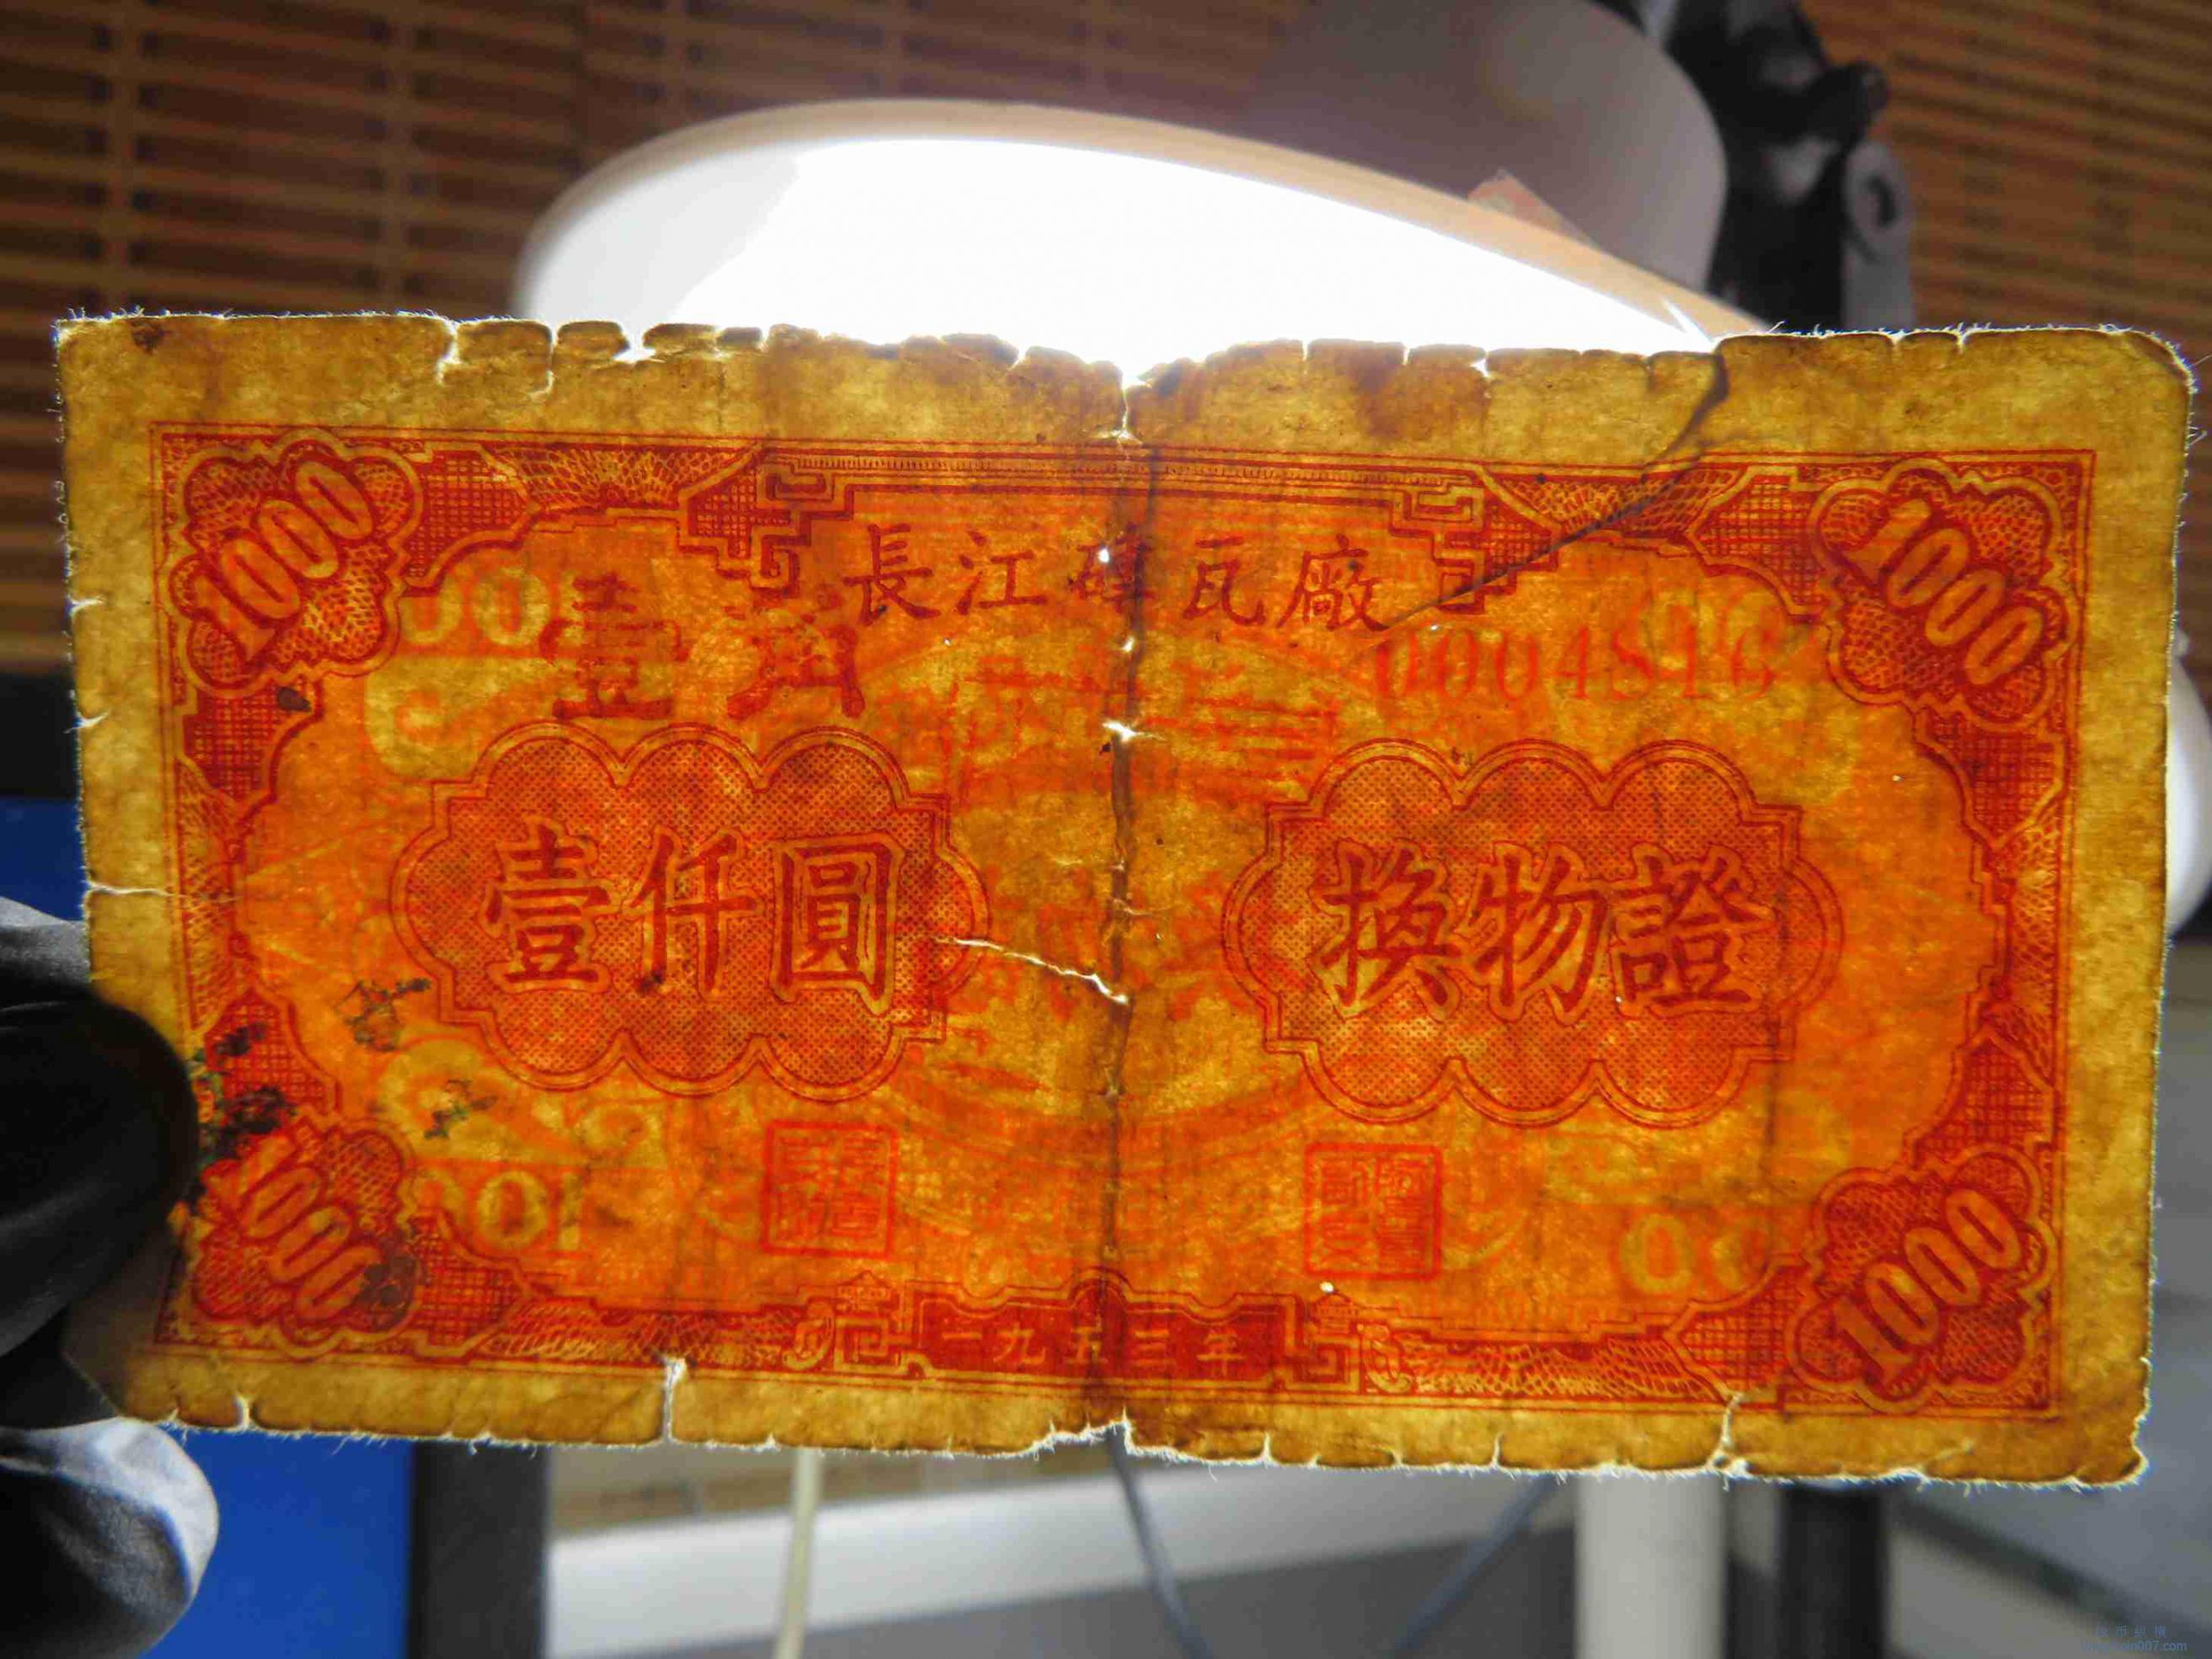 1000 1000
長江磚瓦廠
壹角
0004816
壹仟圓
換物證
1000 1000
一九五三年